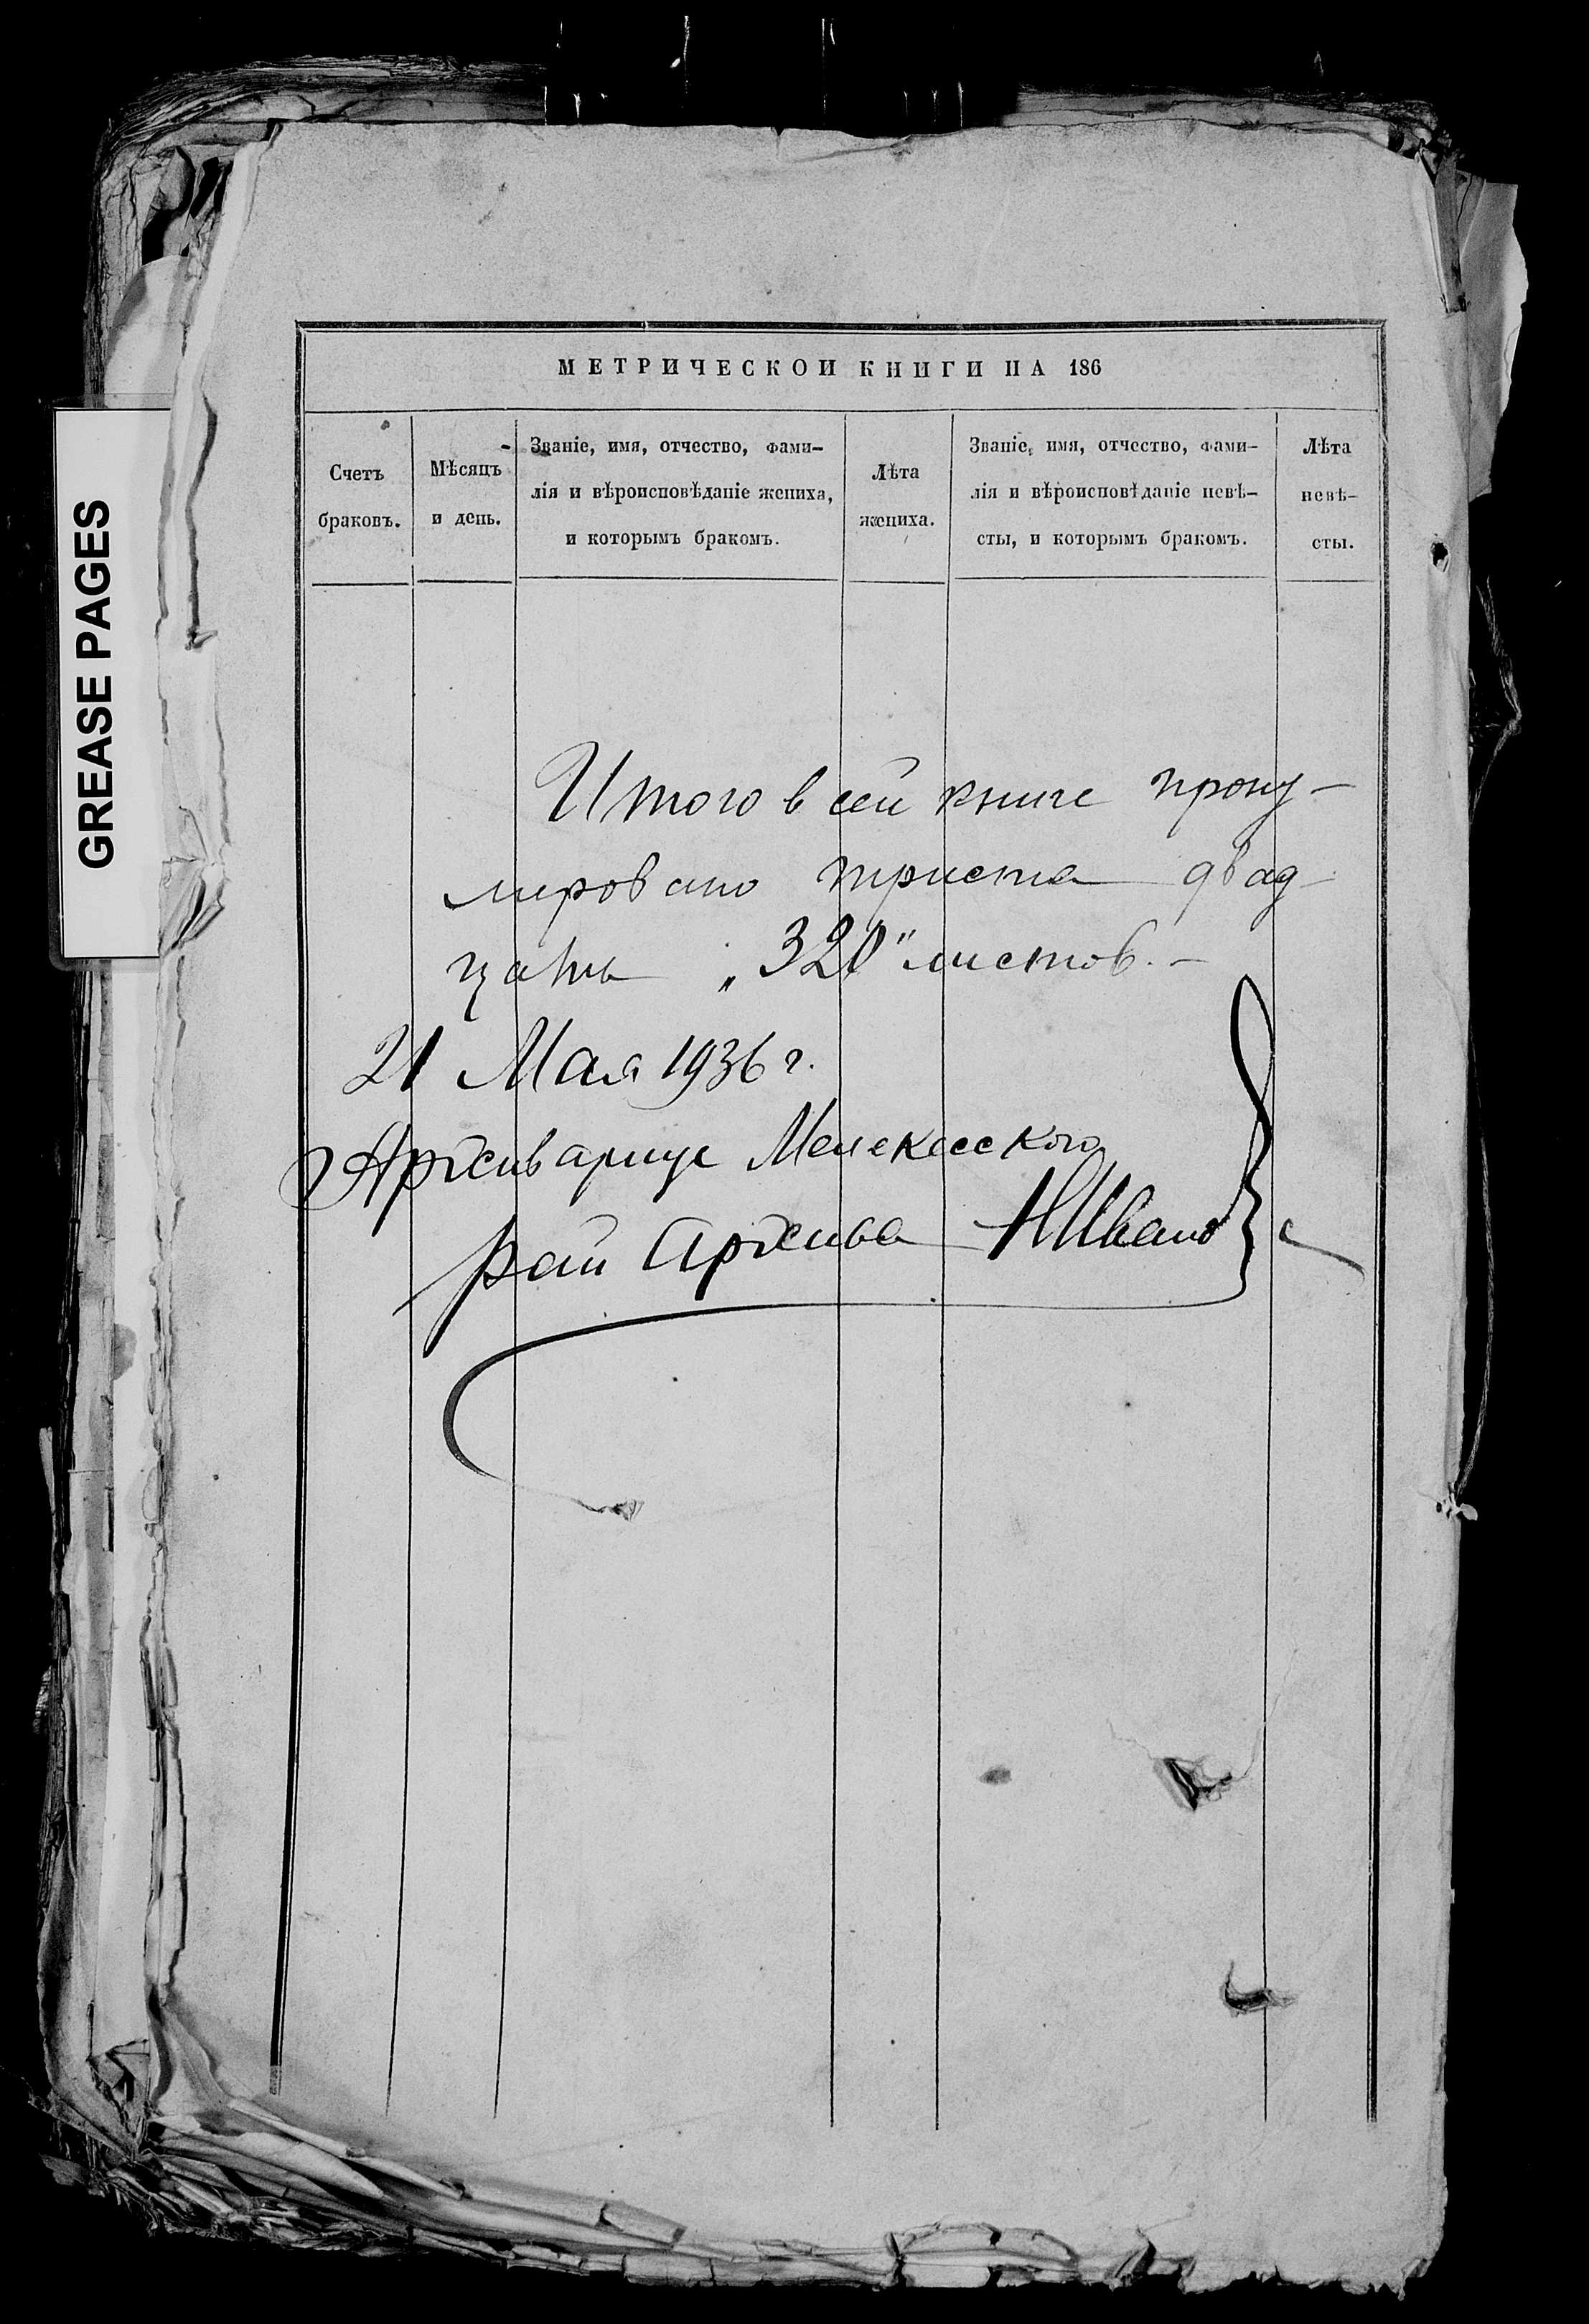 GREASE PAGES
МЕТРИЧЕСКОЙ КНИГИ НА 186
Счетъ браковъ.
Мѣсяцъ и день.
Званіе, имя, отчество, фами-
лія и вѣроисповѣданіе жениха,
и которымъ бракомъ.
Лѣта жениха.
Званіе, имя, отчество, фами-
лія и вѣроисповѣданіе невѣ-
сты, и которымъ бракомъ.
Лѣта невѣ-
сты.
Итого в сей книге прону-
мировано триста двад-
цать „320" листов.-
21 Мая 1936 г.
Архивариус Мелекесского
рай Архива НИванов